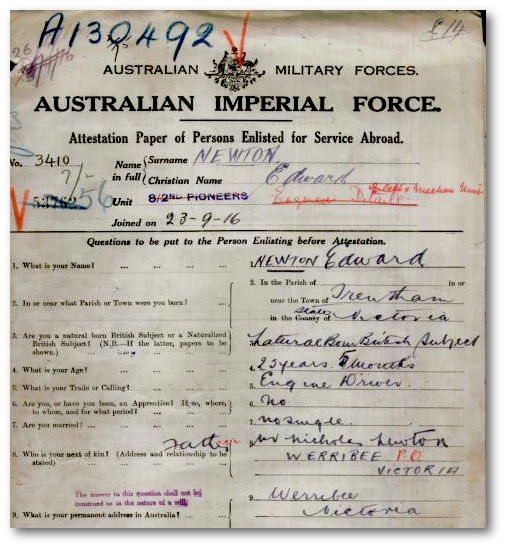 A130492
£14
26
AUSTRALIAN MILITARY FORCES.
AUSTRALIAN IMPERIAL FORCE.
Attestation Paper of Persons Enlisted for Service Abroad.
No. 3410 Name in full Surname NEWTON
Christian Name Edward
53762 56 Unit 8/2ND PIONEERS
Joined on 23-9-16
Questions to be put to the Person Enlisting before Attestation.
1. What is your Name? ... ... ... 1. NEWTON Edward
2. In or near what Parish or Town were you born? ... 2. In the Parish of in or
near the Town of Trentham
in the County of State Victoria
3. Are you a natural born British Subject or a Naturalized British Subject? (N.B.—If the latter, papers to be shown.) 3. Natural Born British Subject
4. What is your Age? ... ... ... 4. 23 years 5 months
5. What is your Trade or Calling? ... ... 5. Engine Driver.
6. Are you, or have you been, an Apprentice? If so, where, to whom, and for what period? ... 6. No
7. Are you married? ... ... ... 7. no single
8. Who is your next of kin? (Address and relationship to be stated) ... Father 8. Mr Nicholas Newton
WERRIBEE P.O
VICTORIA
The answer to this question shall not be
construed as in the nature of a will.
9. What is your permanent address in Australia? ... 9. Werribee
Victoria